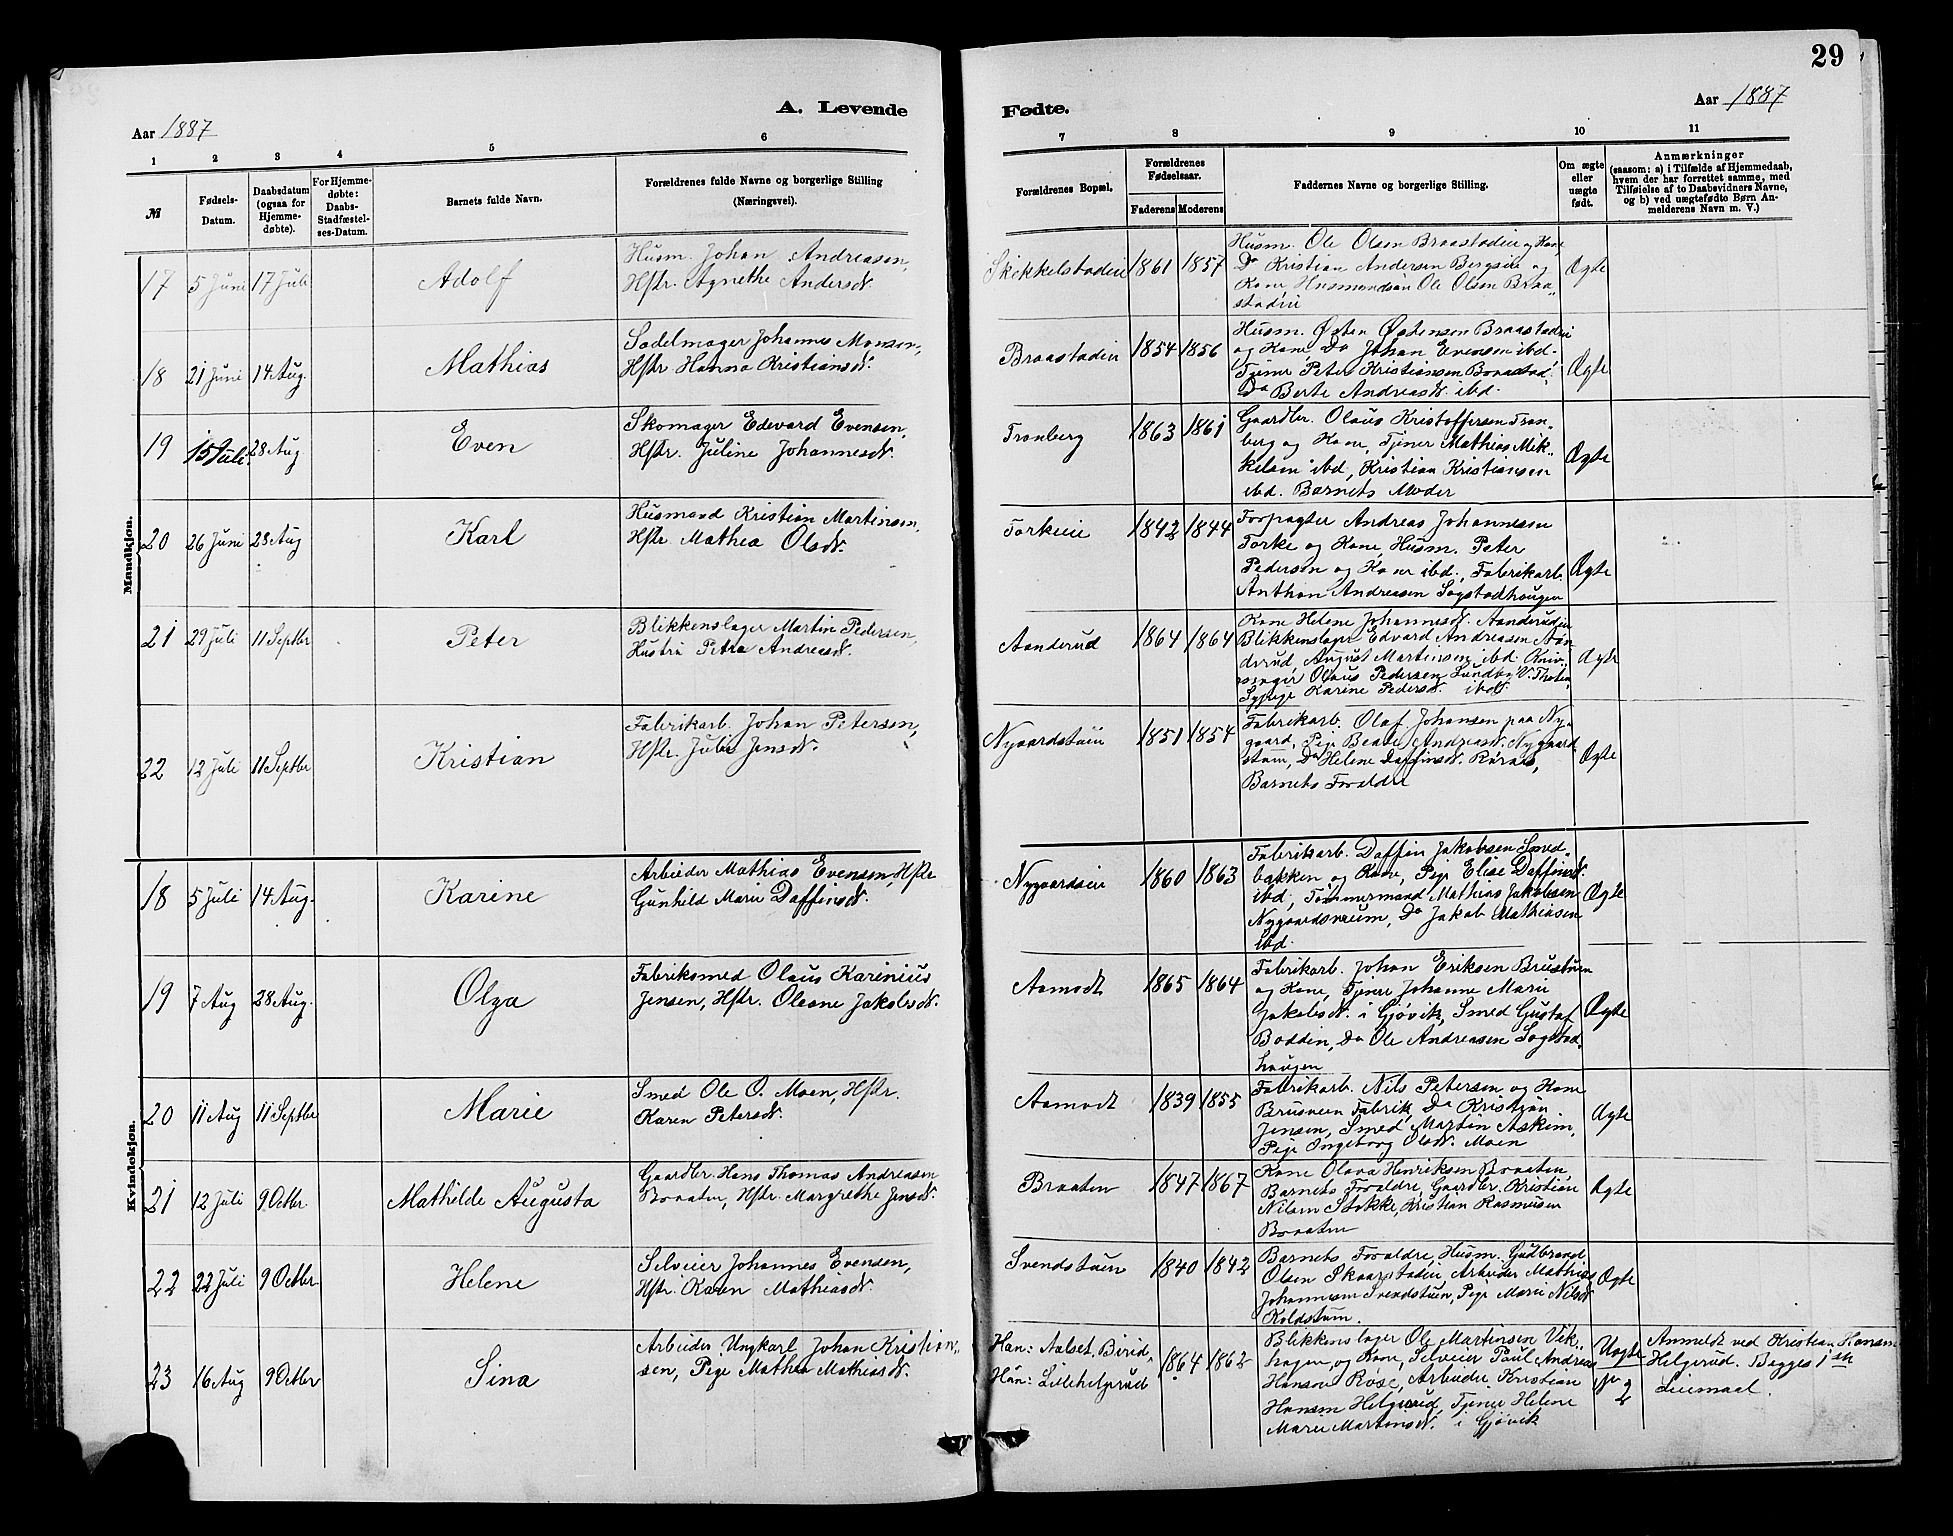 29
A. Levende Fødte.
Aar 1887
Aar 1887
1 2 3 4 5 6 7 8 9 10 11
№
Fødsels-
Datum.
Daabsdatum
(ogsaa for
Hjemme-
døbte).
For Hjemme-
døbte:
Daabs-
Stadfæstel-
ses-Datum.
Barnets fulde Navn.
Forældrenes fulde Navne og borgerlige Stilling
(Næringsvei).
Forældrenes Bopæl,
Forældrenes
Fødselsaar.
Faderens Moderens
Faddernes Navne og borgerlige Stilling.
Om ægte
eller
uægte
født.
Anmærkninger
(saasom: a) i Tilfælde af Hjemmedaab,
hvem der har forrettet samme, med
Tilføielse af to Daabsvidners Navne,
og b) ved uægtefødte Børn An-
melderens Navn m. V.)
Mandkjøn.
17 5 Juni 17 Juli Adolf
Husm. Johan Andreasen,
Hstr. Agnethe Andersd.
Skikkelstadeie 1861 1857
Husm. Ole Olsen Braastadeie og Kone,
Do Kristian Andersen Bergseie og
Kone, Husmandsøn Ole Olsen Braa-
stadeie
Ægte
18 21 Juni 14 Aug. Mathias
Sadelmager Johannes Monsen,
Hstr. Hanna Kristiansd.
Braastadeie 1854 1856
Husm. Østen Østensen Braastadeie
og Kone, Do Johan Evensen ibd.
Tjener Peter Kristiansen Braastad,
Do Berte Andreasd. ibd.
Ægte
19 15 Juli 28 Aug Even
Skomager Edevard Evensen,
Hstr. Juline Johannesd.
Tronberg 1863 1861
Gaardbr. Olaus Kristoffersen Tron-
berg og Kone, Tjener Mathias Mik-
kelsen ibd, Kristian Kristiansen
ibd. Barnets Moder
Ægte
20 26 Juni 28 Aug Karl
Husmand Kristian Martinsen,
Hstr Mathea Olsd.
Torkeeie 1842 1844
Forpagter Andreas Johannesen
Torke og Kone, Husm. Peter
Pedersen og Kone ibd., Fabrikarb.
Anthon Andreasen Sogstadhaugen
Ægte
21 29 Juli 11 Septbr Peter
Blikkenslager Martin Pedersen,
Hustru Petra Andreasd.
Aanderud 1864 1864
Kone Helene Johannesd. Aanderudeie
Blikkenslager Edvard Andreasen Aan-
derud, August Martinsen ibd.
Olaus Pedersen Lundby V. Thoten,
Sypige Karine Pedersd. ibd.
Ægte
22 12 Juli 11 Septbr Kristian
Fabrikarb. Johan Petersen,
Hstr. Julie Jensd.
Nygaardstuen 1851 1854
Fabrikarb. Olaf Johansen paa Ny-
gaard, Pige Beate Andreasd. Nygaard
stuen, Do Helene Daffinsd.
Barnets Forældre
Ægte
Kvindekjøn.
18 5 Juli 14 Aug. Karine
Arbeider Mathias Evensen, Hstr
Gunhild Marie Daffinsd.
Nygaardseie 1860 1863
Fabrikarb. Daffin Jakobsen Smed-
bakken og Kone, Pige Elise Daffinsd.
ibd, Tømmermand Mathias Jakobsen
Nygaardsveum, Do Jakob Mathiasen
ibd.
Ægte
19 7 Aug 28 Aug. Olga
Fabriksmed Olaus Karinius
Jensen, Hstr. Oleane Jakobsd.
Aamodt 1865 1864
Fabrikarb. Johan Eriksen Brustuen
og Kone, Tjener Johanne Marie
Jakobsd. i Gjøvik, Smed Gustaf
Boddin, Do Ole Andreasen Sogstad-
haugen
Ægte
20 11 Aug 11 Septbr Marie
Smed Ole O. Moen, Hstr.
Karen Petersd.
Aamodt 1839 1855
Fabrikarb. Nils Petersen og Kone
Brusveen Fabrik, Do Kristian
Jensen, Smed Martin Askim,
Pige Ingeborg Olsd. Moen
Ægte
21 12 Juli 9 Octbr. Mathilde Augusta
Gaardbr. Hans Thomas Andreasen
Braaten, Hstr. Margrethe Jensd.
Braaten 1847 1867
Kone Olava Henriksen Braaten,
Barnets Forældre, Gaardbr. Kristian
Nilsen Stokke, Kristian Rasmusen
Braaten
Ægte
22 22 Juli 9 Octbr Helene
Selveier Johannes Evensen,
Hstr. Karen Mathiasd.
Svendstuen 1840 1842
Barnets Forældre, Husm. Gudbrand
Olsen Skaarstadeie, Arbeider Mathias
Johannesen Svendstuen, Pige Marie Nilsd
Koldstuen.
Ægte
23 16 Aug 9 Octbr Sina
Arbeider, Ungkarl Johan Kristian-
sen, Pige Mathea Mathiasd.
Han: Aalset, Birid,
Hun: Lillehelgerud 1864 1862
Blikkenslager Ole Martinsen Vik-
hagen og Kone, Selveier Paul Andreas
Hansen Rose, Arbeider Kristian
Hansen Helgerud, Tjener Helene
Marie Martinsd. i Gjøvik
Uægte
Anmeldt ved Kristian Hansen
Helgerud. Begges 1ste
Leiermaal.